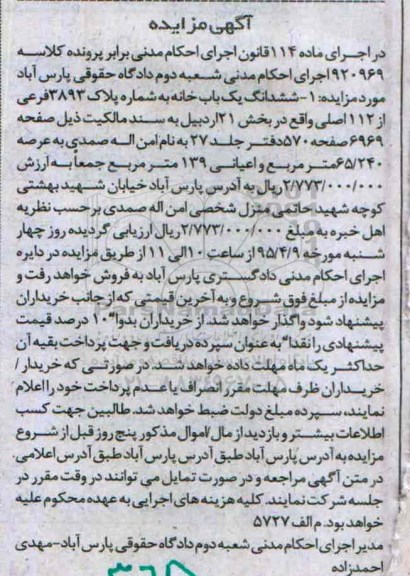 آگهی مزایده
در اجرای ماده ۱۱۴ قانون اجرای احکام مدنی برابر پرونده کلاسه
۹۲۰۹۶۹ اجرای احکام مدنی شعبه دوم دادگاه حقوقی پارس آباد
مورد مزایده: ۱- ششدانگ یک باب خانه به شماره پلاک ۳۸۹۳ فرعی
از ۱۱۲ اصلی واقع در بخش ۲۱ اردبیل به سند مالکیت ذیل صفحه
۶۹۶۹ صفحه ۵۷۰ دفتر جلد ۲۷ به نام امن اله صمدی به عرصه
۶۵/۲۴۰ متر مربع و اعیانی ۱۳۹ متر مربع جمعاً به ارزش
۲/۷۷۳/۰۰۰/۰۰۰ ریال به آدرس پارس آباد خیابان شهید بهشتی
کوچه شهید حاتمی منزل شخصی امن اله صمدی برحسب نظریه
اهل خبره به مبلغ ۲/۷۷۳/۰۰۰/۰۰۰ ریال ارزیابی گردیده روز چهار
شنبه مورخه ۹۵/۴/۹ از ساعت ۱۰ الی ۱۱ از طریق مزایده در دایره
اجرای احکام مدنی دادگستری پارس آباد به فروش خواهد رفت و
مزایده از مبلغ فوق شروع و به آخرین قیمتی که از جانب خریداران
پیشنهاد شود واگذار خواهد شد. از خریداران بدوا" ۱۰ درصد قیمت
پیشنهادی را نقدا" به عنوان سپرده دریافت و جهت پرداخت بقیه آن
حداکثر یک ماه مهلت داده خواهد شد. در صورتی که خریدار/
خریداران ظرف مهلت مقرر انصراف یا عدم پرداخت خود را اعلام
نمایند، سپرده مبلغ دولت ضبط خواهد شد. طالبین جهت کسب
اطلاعات بیشتر و بازدید از مال /اموال مذکور پنج روز قبل از شروع
مزایده به آدرس پارس آباد طبق آدرس پارس آباد طبق آدرس اعلامی
در متن آگهی مراجعه و در صورت تمایل می توانند در وقت مقرر در
جلسه شرکت نمایند. کلیه هزینه های اجرایی به عهده محکوم علیه
خواهد بود. م الف ۵۷۲۷
مدیر اجرای احکام مدنی شعبه دوم دادگاه حقوقی پارس آباد-مهدی
احمدزاده